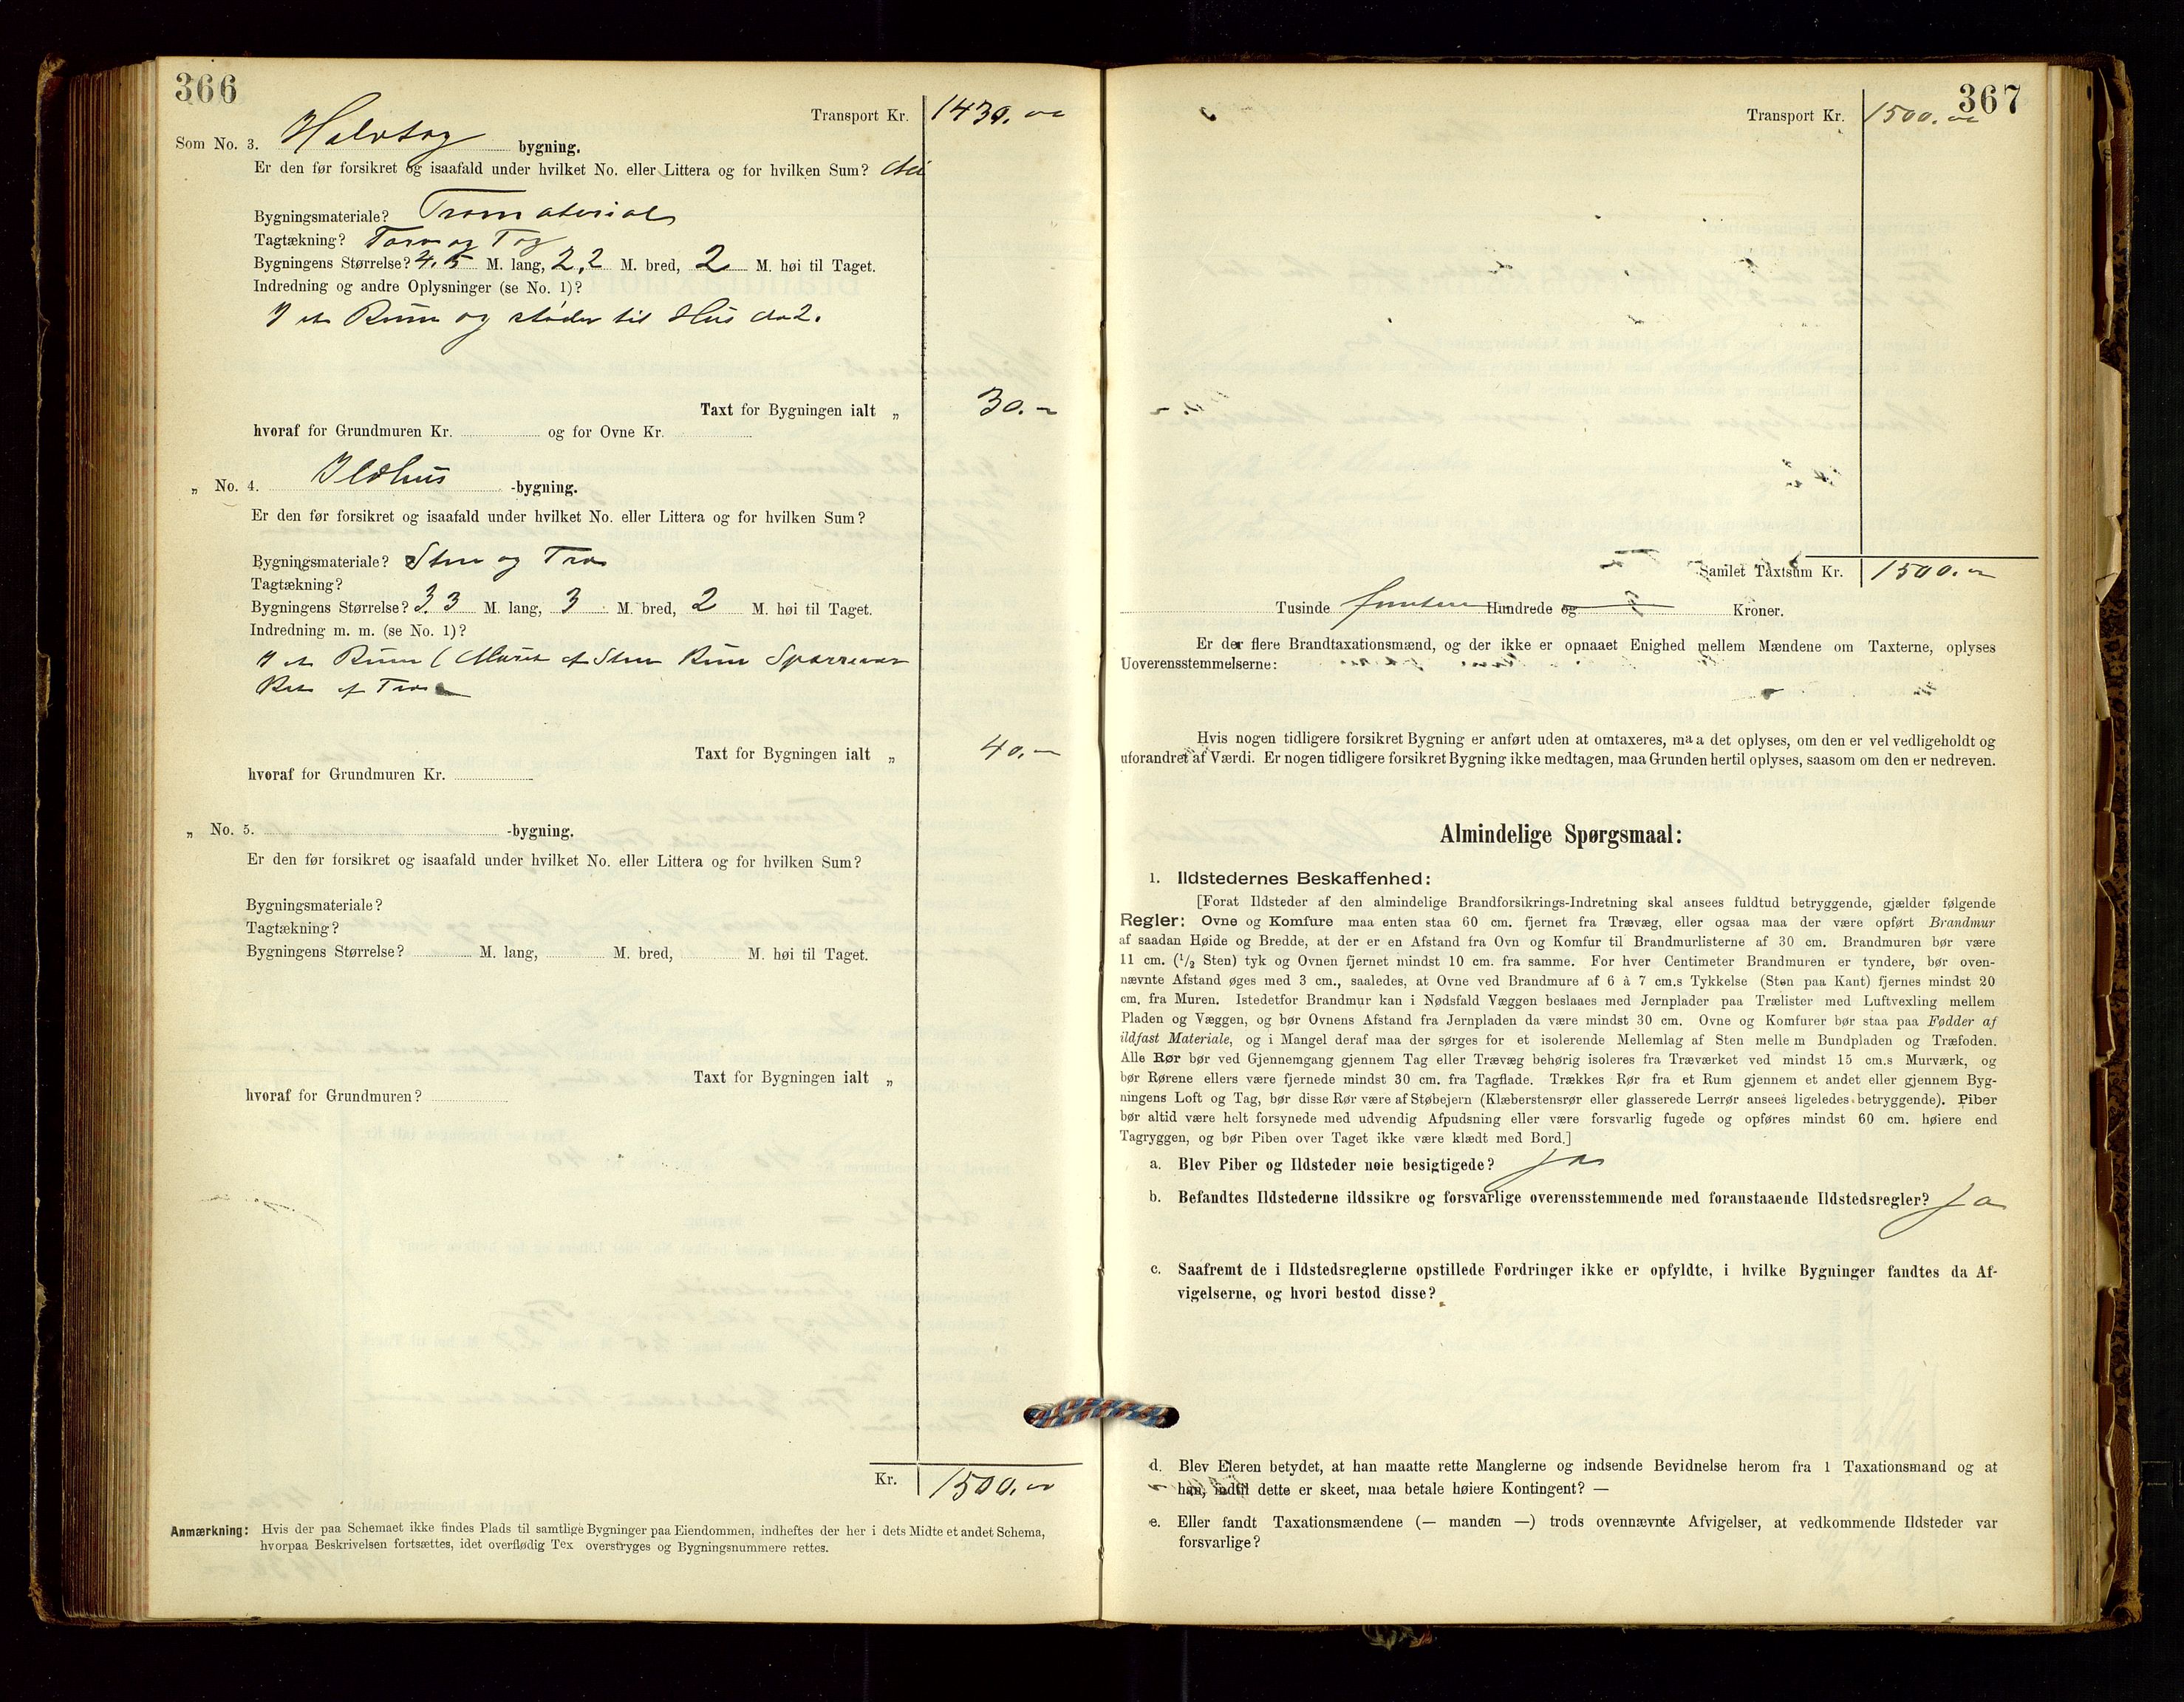 366
Transport Kr. 1430.00
Som No. 3. Halvtag bygning.
Er den før forsikret og isaafald under hvilket No. eller Littera og for hvilken Sum? Nei
Bygningsmateriale? Træmateriale
Tagtækning? Torv og
Bygningens Størrelse? 4.5 M. lang, 2,2 M. bred, 2 M. høi til Taget.
Indredning og andre Oplysninger (se No. 1)?
I et Rum og støder til Hus No 2.
Taxt for Bygningen ialt „ 30.–
hvoraf for Grundmuren Kr. og for Ovne Kr.
„ No. 4. Ildhus -bygning.
Er den før forsikret og isaafald under hvilket No. eller Littera og for hvilken Sum?
Bygningsmateriale? Sten og Træ
Tagtækning?
Bygningens Størrelse? 3.3 M. lang, 3 M. bred, 2 M. høi til Taget.
Indredning m. m. (se No. 1)?
I et Rum ( Muret af Sten
af Træ
Taxt for Bygningen ialt „ 40.–
hvoraf for Grundmuren Kr.
„ No. 5. -bygning.
Er den før forsikret og isaafald under hvilket No. eller Littera og for hvilken Sum?
Bygningsmateriale?
Tagtækning?
Bygningens Størrelse? M. lang, M. bred, M. høi til Taget.
Taxt for Bygningen ialt „
hvoraf for Grundmuren?
Kr. 1500.00
Anmærkning: Hvis der paa Schemaet ikke findes Plads til samtlige Bygninger paa Eiendommen, indheftes der her i dets Midte et andet Schema,
hvorpaa Beskrivelsen fortsættes, idet overflødig Tex overstryges og Bygningsnummere rettes.
367
Transport Kr. 1500.00
Samlet Taxtsum Kr. 1500.00
Tusinde femten Hundrede og Kroner.
Er der flere Brandtaxationsmænd, og der ikke er opnaaet Enighed mellem Mændene om Taxterne, oplyses
Uoverensstemmelserne:
Hvis nogen tidligere forsikret Bygning er anført uden at omtaxeres, maa det oplyses, om den er vel vedligeholdt og
uforandret af Værdi. Er nogen tidligere forsikret Bygning ikke medtagen, maa Grunden hertil oplyses, saasom om den er nedreven.
Almindelige Spørgsmaal:
1. Ildstedernes Beskaffenhed:
[Forat Ildsteder af den almindelige Brandforsikrings-Indretning skal ansees fuldtud betryggende, gjælder følgende
Regler: Ovne og Komfure maa enten staa 60 cm. fjernet fra Trævæg, eller ogsaa maa der være opført Brandmur
af saadan Høide og Bredde, at der er en Afstand fra Ovn og Komfur til Brandmurlisterne af 30 cm. Brandmuren bør være
11 cm. (1/2 Sten) tyk og Ovnen fjernet mindst 10 cm. fra samme. For hver Centimeter Brandmuren er tyndere, bør oven-
nævnte Afstand øges med 3 cm., saaledes, at Ovne ved Brandmure af 6 à 7 cm.s Tykkelse (Sten paa Kant) fjernes mindst 20
cm. fra Muren. Istedetfor Brandmur kan i Nødsfald Væggen beslaaes med Jernplader paa Trælister med Luftvexling mellem
Pladen og Væggen, og bør Ovnens Afstand fra Jernpladen da være mindst 30 cm. Ovne og Komfurer bør staa paa Fødder af
ildfast Materiale, og i Mangel deraf maa der sørges for et isolerende Mellemlag af Sten mellem Bundpladen og Træfoden.
Alle Rør bør ved Gjennemgang gjennem Tag eller Trævæg behørig isoleres fra Træværket ved mindst 15 cm.s Murværk, og
bør Rørene ellers være fjernede mindst 30 cm. fra Tagflade. Trækkes Rør fra et Rum gjennem et andet eller gjennem Byg-
ningens Loft og Tag, bør disse Rør være af Støbejern (Klæberstensrør eller glasserede Lerrør ansees ligeledes betryggende). Piber
bør altid være helt forsynede med udvendig Afpudsning eller være forsvarlig fugede og opføres mindst 60 cm. høiere end
Tagryggen, og bør Piben over Taget ikke være klædt med Bord.]
a. Blev Piber og Ildsteder nøie besigtigede? Ja
b. Befandtes Ildstederne ildssikre og forsvarlige overensstemmende med foranstaaende Ildstedsregler? Ja
c. Saafremt de i Ildstedsreglerne opstillede Fordringer ikke er opfyldte, i hvilke Bygninger fandtes da Af-
vigelserne, og hvori bestod disse?
d. Blev Eieren betydet, at han maatte rette Manglerne og indsende Bevidnelse herom fra 1 Taxationsmand og at
han, indtil dette er skeet, maa betale høiere Kontingent? —
e. Eller fandt Taxationsmændene (— manden —) trods ovennævnte Afvigelser, at vedkommende Ildsteder var
forsvarlige?